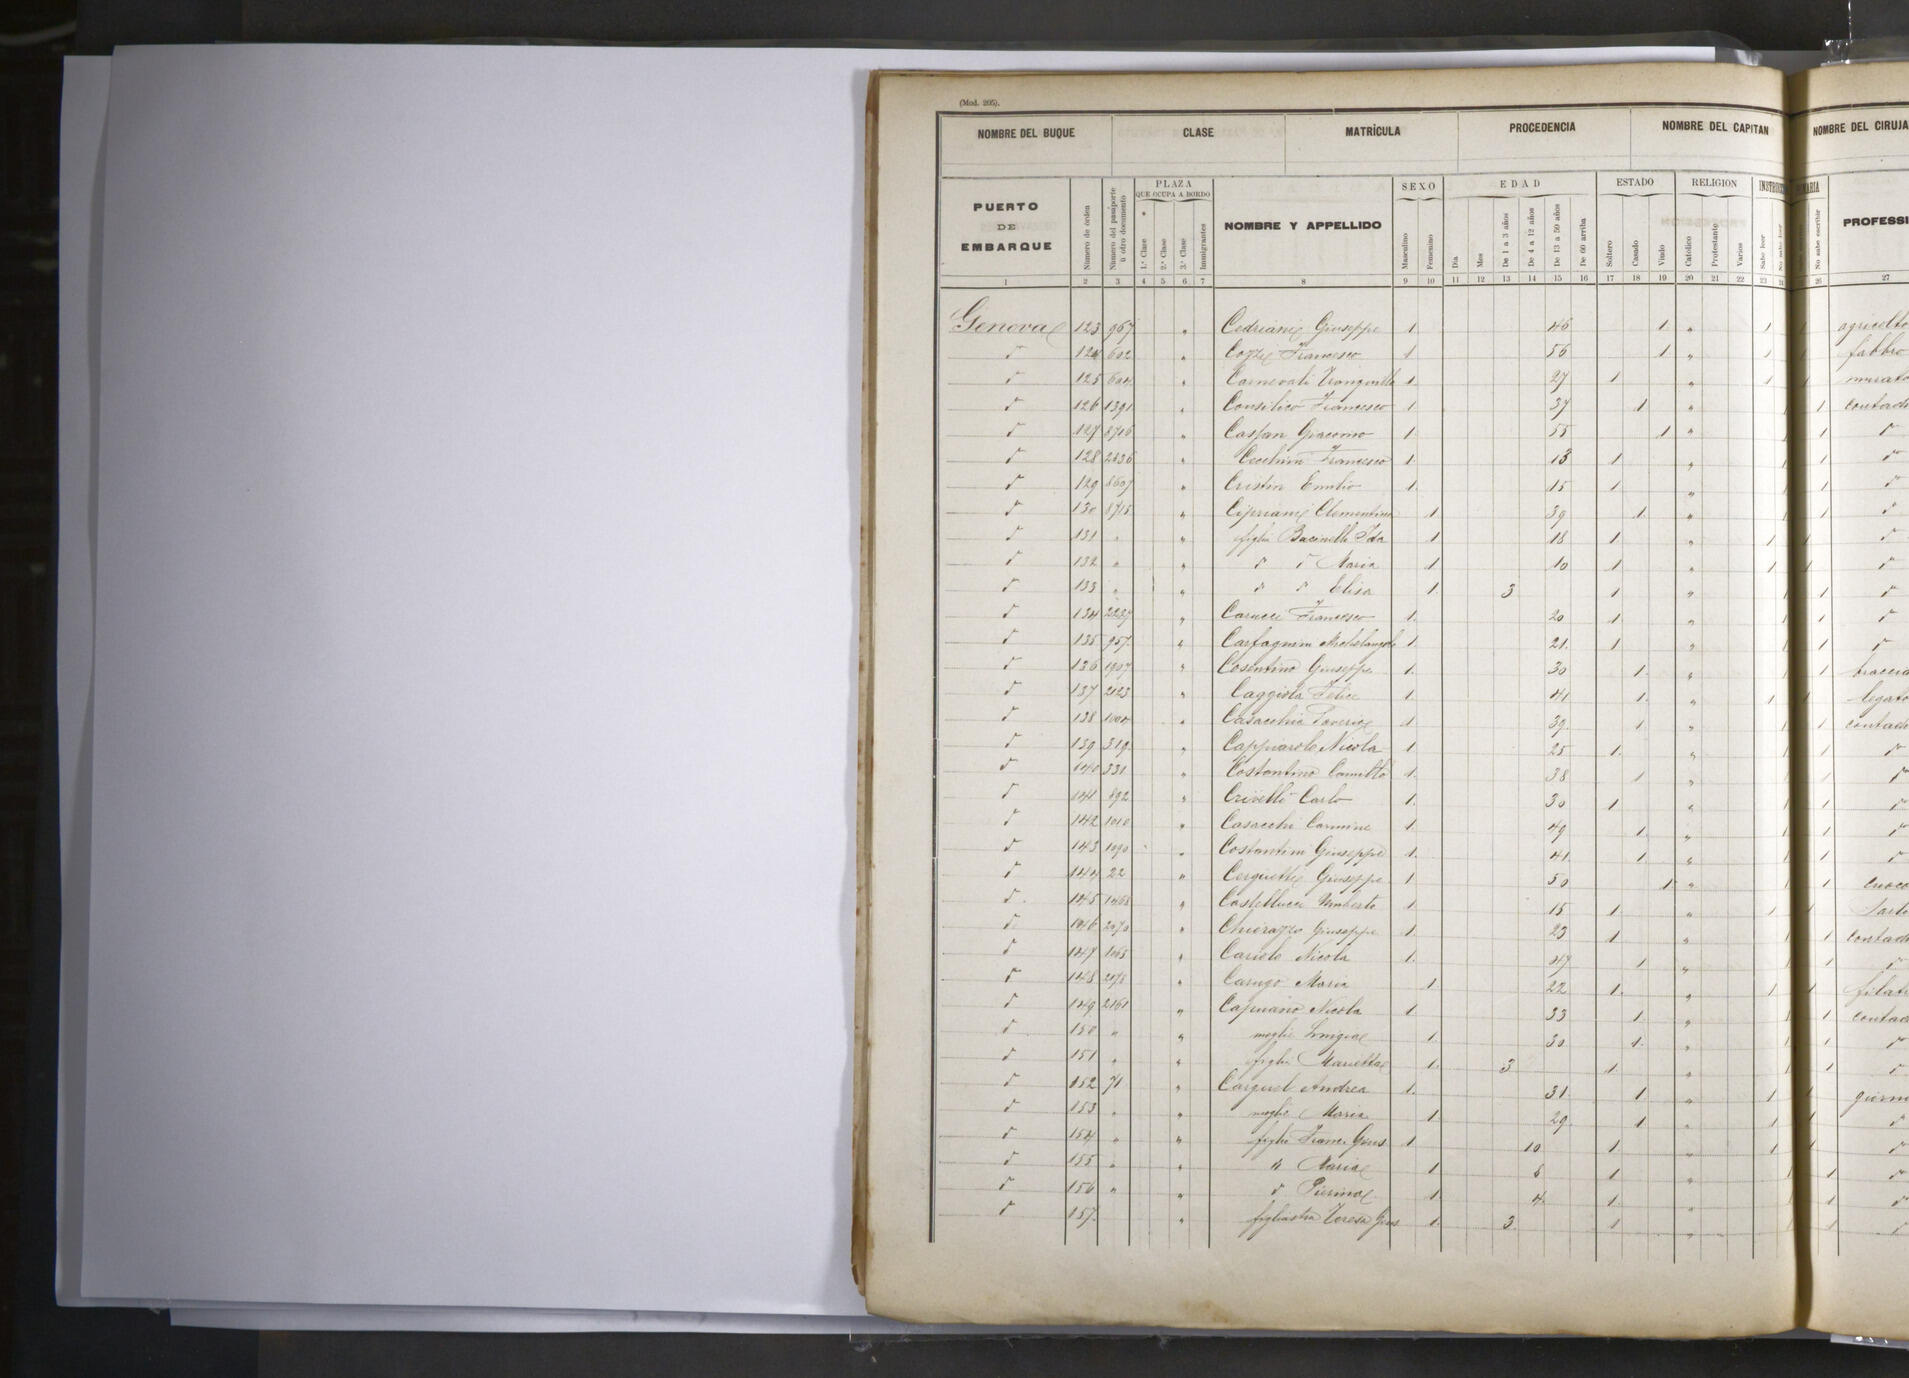 (Mod. 205).
NOMBRE DEL BUQUE CLASE MATRÍCULA PROCEDENCIA NOMBRE DEL CAPITAN NOMBRE DEL CIRUJA
PUERTO DE EMBARQUE Número de órden Número del pasaporte ú otro documento PLAZA QUE OCUPA A BORDO 1.ª Clase 2.ª Clase 3.ª Clase Inmigrantes NOMBRE Y APPELLIDO SEXO Masculino Femenino EDAD Dia Mes De 1 a 3 años De 4 a 12 años De 13 a 59 años De 60 arriba ESTADO Soltero Casado Viudo RELIGION Catolico Protestante Varios Sabe leer No sabe escribir PROFESSI
1 2 3 4 5 6 7 8 9 10 11 12 13 14 15 16 17 18 19 20 21 22 23 26 27
Genova 123 967 " Cedriani Giuseppe 1 46 1 " 1 agricolto
124 602 " Cozzi Francesco 1 56 1 " 1 fabbro
125 604 " Carnevali Tranquillo 1 27 1 " 1 murato
126 1391 " Consilico Francesco 1 37 1 1 contadi
127 8706 " Caspan Giacomo 1 55 1 " 1
128 2836 " Cecchini Francesco 1 13 1 " 1
129 8607 " Cristin Emilio 1 15 1 " 1
130 8715 " Cipriani Clementina 1 39 1 " 1
131 " " figli Bacinelli Ida 1 18 1 " 1
132 " " Maria 1 10 1 " 1
133 " " Elisa 1 3 1 " 1
134 2237 " Carucci Francesco 1 20 1 " 1
135 957 " Carfagnini Michelangelo 1 21 1 " 1
136 1907 " Cosentino Giuseppe 1 30 1 " 1
137 2123 " Caggiola Felice 1 41 1 " 1 legato
138 1004 " Casacchia Saverio 1 39 1 " 1 contadi
139 319 " Nicola 1 25 1 " 1
140 331 " Costantino Camillo 1 38 1 " 1
141 892 " Crivelli Carlo 1 30 1 " 1
142 1010 " Casacchi Carmine 1 49 1 " 1
143 1090 " Costantini Giuseppe 1 41 1 " 1
144 22 " Giuseppe 1 50 1 " 1 cuoco
145 1468 " Castellucci Umberto 1 15 1 " 1 sarto
146 2070 " Chierazzo Giuseppe 1 23 1 " 1 contadi
147 1065 " Cariele Nicola 1 47 1 " 1
148 2078 " Carugo Maria 1 22 1 " 1 filatr
149 2161 " Capuano Nicola 1 33 1 " 1 contad
150 " " moglie Luigia 1 30 1 " 1
151 " " figlia Marietta 1 3 1 1
152 71 " Andrea 1 31 1 " 1 giorna
153 " " moglie Maria 1 29 1 " 1
154 " " figli Franc. Gius 1 10 1 " 1
155 " " " Maria 1 6 1 " 1
156 " " Pierina 1 4 1 " 1
157 " figliastra Teresa Gius 1 3 1 " 1